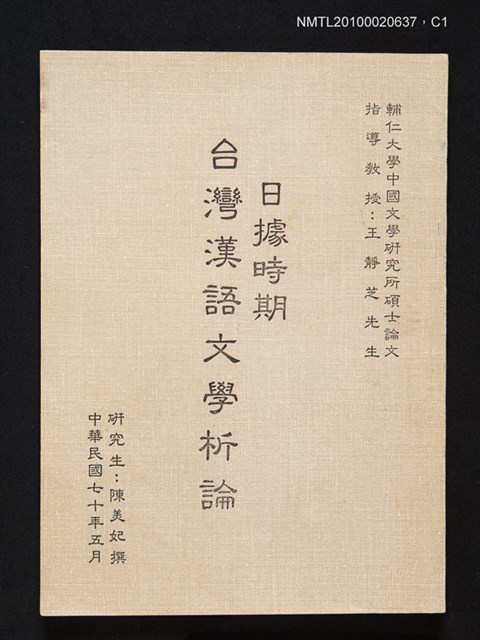 NMTL20100020637，C1
輔仁大學中國文學研究所碩士論文
指導教授：王靜芝先生
日據時期
台灣漢語文學析論
研究生：陳美妃撰
中華民國七十年五月